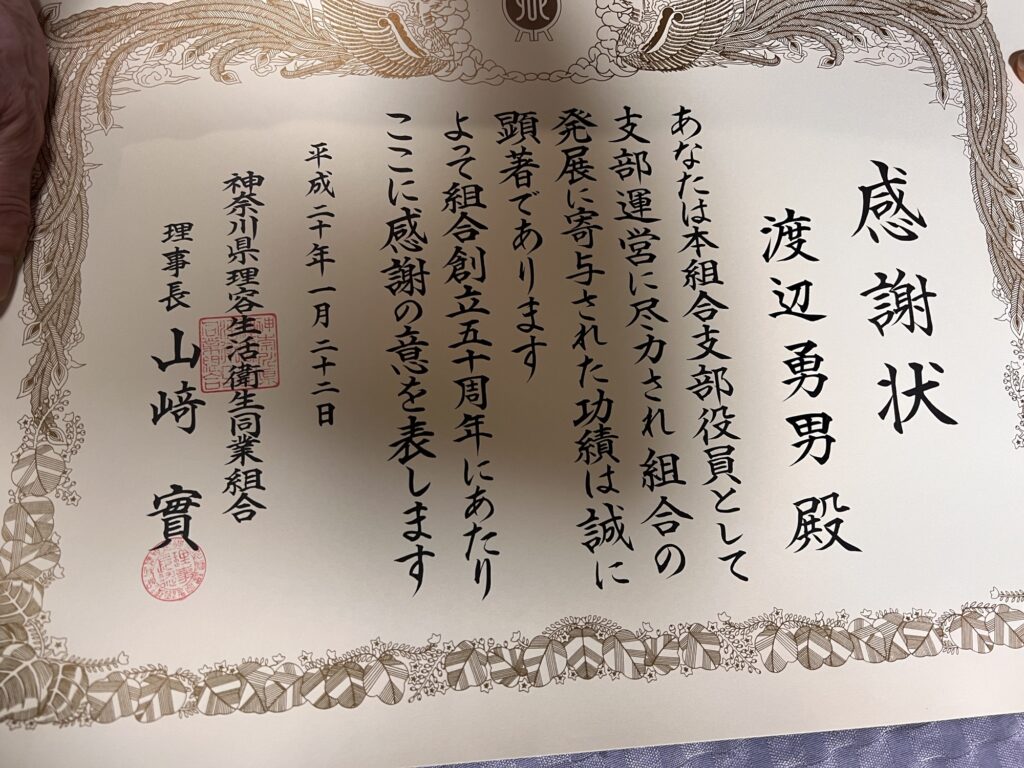 感謝状
渡辺勇男殿
あなたは本組合支部役員として
支部運営に尽力され組合の
発展に寄与された功績は誠に
顕著であります
よって組合創立五十周年にあたり
ここに感謝の意を表します
平成二十年一月二十二日
神奈川県理容生活衛生同業組合
理事長 山﨑 實